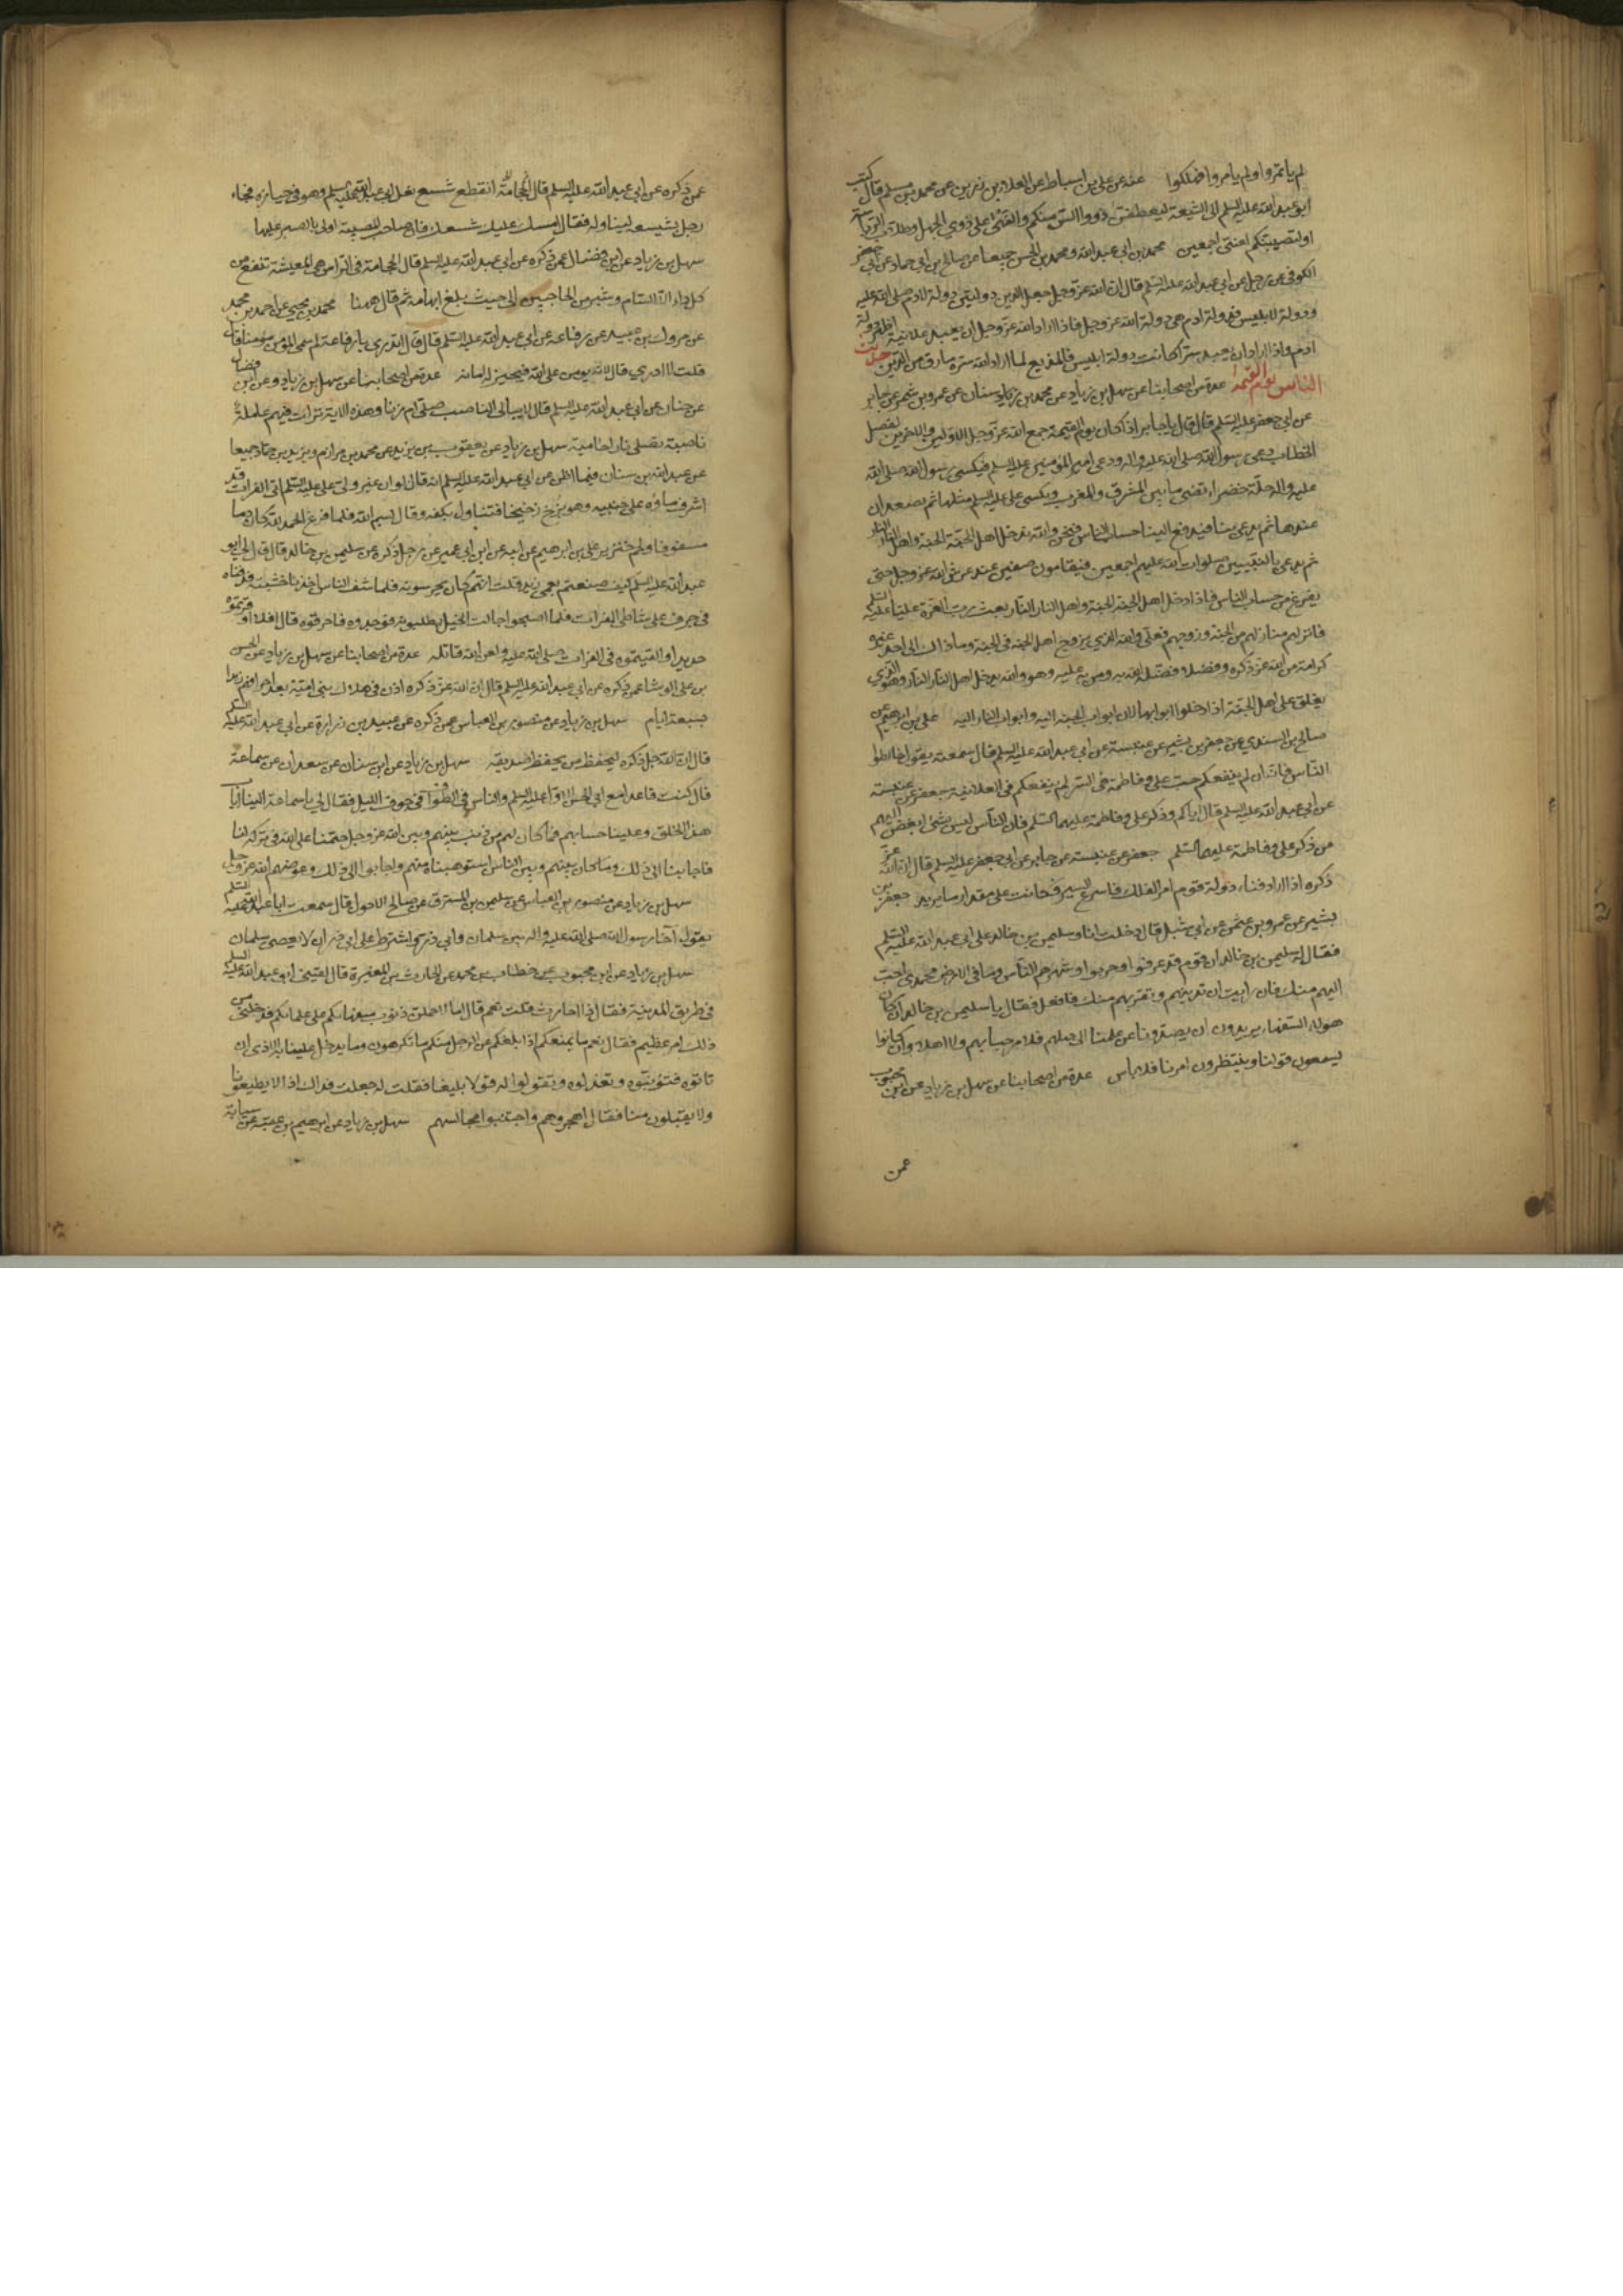 لم ياتمروا ولم يامروا فهلكوا عنه عن علي بن اسباط عن العلا بن رزين عن محمد بن مسلم قال كتب
ابو عبد الله عليه السلم الى الشيعة ليعطفن ذووا السن منكم والنهى على ذوي الجهل وطلاب الرياسة
او لتصيبنكم لعنتي اجمعين محمد بن ابي عبد الله ومحمد بن الحسن جميعا عن صالح بن ابي حماد عن ابي جعفر
الكوفي عن رجل عن ابي عبد الله عليه السلم قال ان الله عز وجل جعل الدين دولتين دولة لادم صلى الله عليه
ودولة لابليس فدولة ادم هي دولة الله عز وجل فاذا اراد الله عز وجل ان يعبد علانية اظهر دولة
ادم واذا اراد ان يعبد سرا كانت دولة ابليس فالمذيع لما اراد الله ستره مارق من الدين حديث
الناس يوم القيمة عدة من اصحابنا عن سهل بن زياد عن محمد بن سنان عن عمرو بن شمر عن جابر
عن ابي جعفر عليه السلم قال قال يا جابر اذا كان يوم القيمة جمع الله عز وجل الاولين والاخرين لفصل
الخطاب دعي رسول الله صلى الله عليه واله ودعي امير المؤمنين عليه السلم فيكسى رسول الله صلى الله
عليه واله حلة خضراء تضيء ما بين المشرق والمغرب ويكسى علي عليه السلم مثلها ثم يصعدان
عندها ثم يدعى بنا فيدفع الينا حساب الناس فنحن والله ندخل اهل الجنة الجنة واهل النار النار
ثم يدعى بالنبيين صلوات الله عليهم اجمعين فيقامون صفين عند عرش الله عز وجل حتى
يفرغ من حساب الناس فاذا دخل اهل الجنة الجنة واهل النار النار بعث رب العزة عليا عليه السلم
فانزلهم منازلهم من الجنة وزوجهم فعلي والله الذي يزوج اهل الجنة في الجنة وما ذاك الى احد غيره
كرامة من الله عز ذكره وفضلا فضله الله به ومن به عليه وهو والله يدخل اهل النار النار وهو الذي
يغلق على اهل الجنة اذا دخلوا ابوابها لان ابواب الجنة اليه وابواب النار اليه علي بن ابرهيم عن
صالح بن السندي عن جعفر بن بشير عن عنبسة عن ابي عبد الله عليه السلم قال سمعته يقول خالطوا
الناس فانه ان لم ينفعكم حب علي وفاطمة في السر لم ينفعكم في العلانية جعفر عن عنبسة
عن ابي عبد الله عليه السلم قال اياكم وذكر علي وفاطمة عليهما السلم فان الناس ليس شيء ابغض اليهم
من ذكر علي وفاطمة عليهما السلم جعفر عن عنبسة عن جابر عن ابي جعفر عليه السلم قال ان الله عز
ذكره اذا اراد فناء دولة قوم امر الفلك فاسرع السير فكانت على مقدار ما يريد جعفر بن
بشير عن عمرو بن عثمن عن ابي شبل قال دخلت انا وسليمن بن خالد على ابي عبد الله عليه السلم
فقال له سليمن بن خالد ان قوم قد عرفوا وجربوا وشهرهم الناس وما في الارض محمدي احب
اليهم منك فان رايت ان تدنيهم وتقربهم منك فافعل فقال يا سليمن بن خالد ان كان
هولاء السفهاء يريدون ان يصدونا عن علمنا الى جهلهم فلا مرحبا بهم ولا اهلا وان كانوا
يسمعون قولنا وينتظرون امرنا فلا باس عدة من اصحابنا عن سهل بن زياد عن ابن محبوب
عمن
عمن ذكره عن ابي عبد الله عليه السلم قال انقطع شسع نعل ابي عبد الله عليه السلم وهو في جنازة فجاء
رجل بشسعه ليناوله فقال امسك عليك شسعك فان صاحب المصيبة اولى بالصبر عليها
سهل بن زياد عن ابن فضال عمن ذكره عن ابي عبد الله عليه السلم قال الحجامة في الراس هي المغيثة تنفع من
كل داء الا السام وشبر من الحاجبين الى حيث بلغ ابهامه ثم قال ههنا محمد بن يحيى عن احمد بن محمد
عن مروك بن عبيد عن رفاعة عن ابي عبد الله عليه السلم قال قال اتدري يا رفاعة لم سمي المؤمن مؤمنا قال
قلت لا ادري قال لانه يومن على الله فيجيز له امانه عدة من اصحابنا عن سهل بن زياد وعن ابن فضال
عن حنان عن ابي عبد الله عليه السلم قال لا يبالي الناصب صلى ام زنا وهذه الاية نزلت فيهم عاملة
ناصبة تصلى نارا حامية سهل بن زياد عن يعقوب بن يزيد عن محمد بن مرازم ويزيد بن حماد جميعا
عن عبد الله بن سنان فيما اظن عن ابي عبد الله عليه السلم انه قال لو ان غير ولي علي عليه السلم اتى الفرات وقد
اشرف ماؤه على جنبيه وهو يزخ زخيخا فتناول بكفه وقال بسم الله فلما فرغ الحمد لله كان دما
مسفوحا ولحم خنزير علي بن ابرهيم عن ابيه عن ابن ابي عمير عن رجل ذكره عن سليمن بن خالد قال قال لي ابو
عبد الله عليه السلم كيف صنعتم بعمي زيد قلت انهم كان يحرسونه فلما شف الناس اخذنا خشبته فدفناه
في جرف على شاطئ الفرات فلما اصبحوا جالت الخيل يطلبونه فوجدوه فاحرقوه قال افلا اوقرتموه
حديدا والقيتموه في الفرات صلى الله عليه ولعن الله قاتله عدة من اصحابنا عن سهل بن زياد عن الحسن
بن علي الوشا عمن ذكره عن ابي عبد الله عليه السلم قال ان الله عز ذكره اذن في هلاك بني امية بعد احراقهم زيدا
بسبعة ايام سهل بن زياد عن منصور بن العباس عمن ذكره عن عبيد بن زرارة عن ابي عبد الله عليه السلم
قال ان الله جل ذكره ليحفظ من يحفظ صديقه سهل بن زياد عن ابن سنان عن سعدان عن سماعة
قال كنت قاعدا مع ابي الحسن الاول عليه السلم والناس في الطواف في جوف الليل فقال لي يا سماعة الينا اياب
هذا الخلق وعلينا حسابهم فما كان لهم من ذنب بينهم وبين الله عز وجل حتمنا على الله في تركه لنا
فاجابنا الى ذلك وما كان بينهم وبين الناس استوهبناه منهم واجابوا الى ذلك وعوضهم الله عز وجل
سهل بن زياد عن منصور بن العباس عن سليمن بن المسترق عن صالح الاحول قال سمعت ابا عبد الله عليه السلم
يقول اخا رسول الله صلى الله عليه واله بين سلمان وابي ذر واشترط على ابي ذر ان لا يعصي سلمان
سهل بن زياد عن ابن محبوب عن خطاب بن محمد عن الحارث بن المغيرة قال لقيني ابو عبد الله عليه السلم
في طريق المدينة فقال من ذا احارث قلت نعم قال اما لاحملن ذنوب سفهائكم على علمائكم فدخلني من
ذلك امر عظيم فقال نعم ما يمنعكم اذا بلغكم عن الرجل منكم ما تكرهون وما يدخل علينا به الاذى ان
تاتوه فتؤنبوه وتعذلوه وتقولوا له قولا بليغا فقلت له جعلت فداك اذا لا يطيعونا
ولا يقبلون منا فقال اهجروهم واجتنبوا مجالسهم سهل بن زياد عن ابرهيم بن عقبة عن سيابة